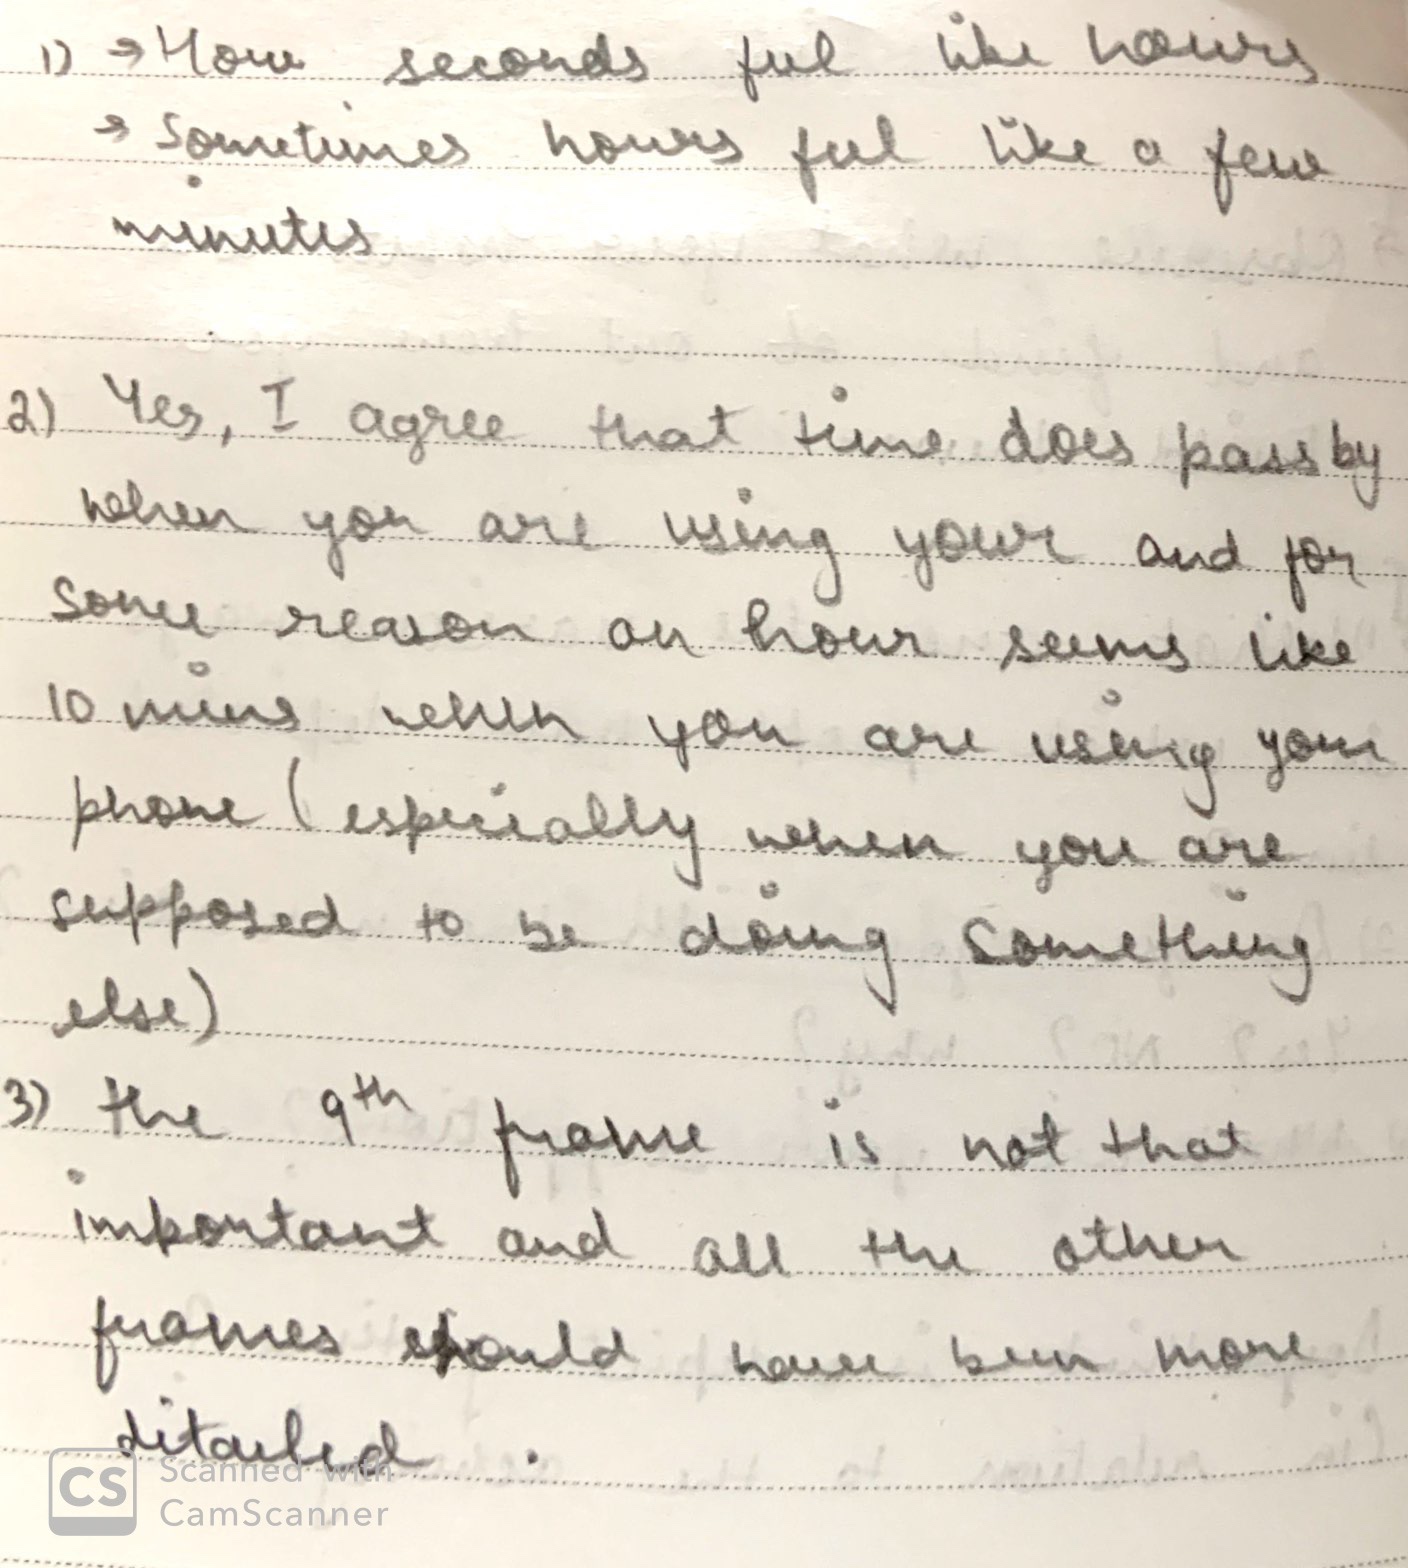 1) → How seconds feel like hours
→ Sometimes hours feel like a few
minutes
2) Yes, I agree that time does pass by
when you are using your and for
some reason an hour seems like
10 mins when you are using your
phone (especially when you are
supposed to be doing something
else)
3) the 9th frame is not that
important and all the other
frames should have been more
ditailed.
CS Scanned with
CamScanner